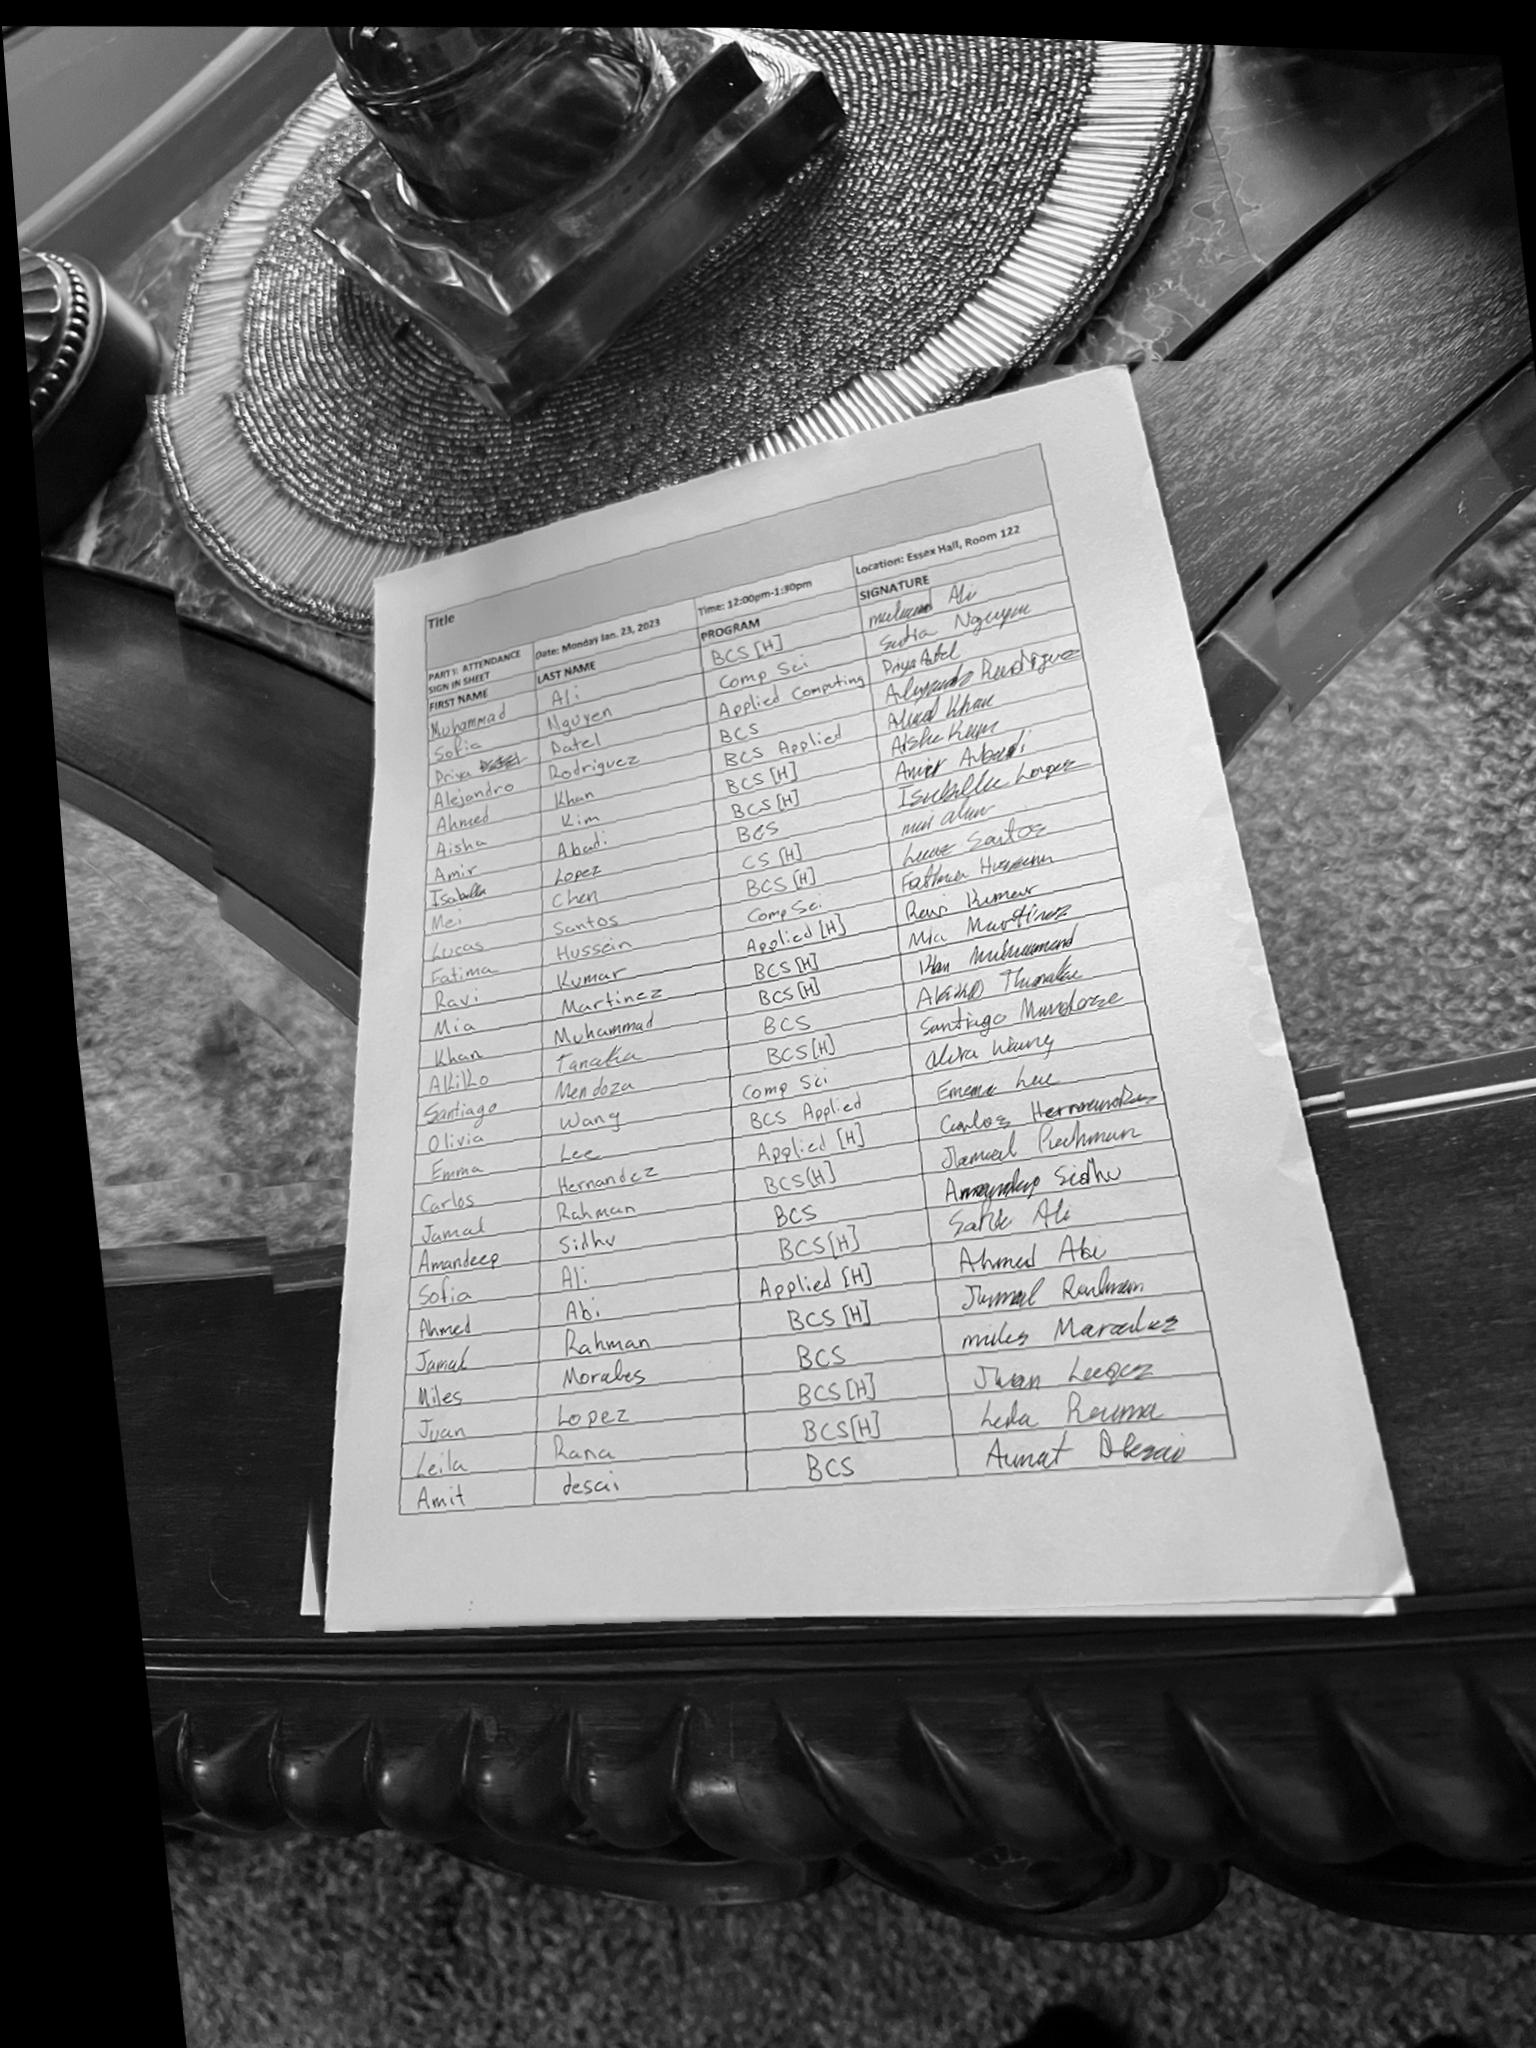 Title
PART 1: ATTENDANCE SIGN IN SHEET Date: Monday Jan. 23, 2023 Time: 12:00pm-1:30pm Location: Essex Hall, Room 122
FIRST NAME LAST NAME PROGRAM SIGNATURE
Muhammad Ali BCS [H] Ali
Sofia Nguyen Comp Sci Sofia Nguyen
Priya Patel Applied Computing Priya Patel
Alejandro Rodriguez BCS Alejandro Rodriguez
Ahmed Khan BCS Applied Ahmed Khan
Aisha Kim BCS [H] Aisha Kim
Amir Abadi BCS [H] Amir Abadi
Isabella Lopez BCS Isabella Lopez
Mei Chen CS [H] mei
Lucas Santos BCS [H] Lucas Santos
Fatima Hussein Comp Sci Fatima Hussein
Ravi Kumar Applied [H] Ravi Kumar
Mia Martinez BCS [H] Mia Martinez
Khan Muhammad BCS [H] Khan Muhammad
Akiko Tanaka BCS Akiko
Santiago Mendoza BCS [H] Santiago Mendoza
Olivia Wang Comp Sci Wang
Emma Lee BCS Applied Emma Lee
Carlos Hernandez Applied [H] Carlos Hernandez
Jamal Rahman BCS [H] Jamal Rahman
Amandeep Sidhu BCS Amandeep Sidhu
Sofia Ali BCS [H] Ali
Ahmed Abi Applied [H] Ahmed Abi
Jamal Rahman BCS [H] Jamal Rahman
Miles Morales BCS miles
Juan Lopez BCS [H] Juan
Leila Rana BCS [H] Leila
Amit desai BCS